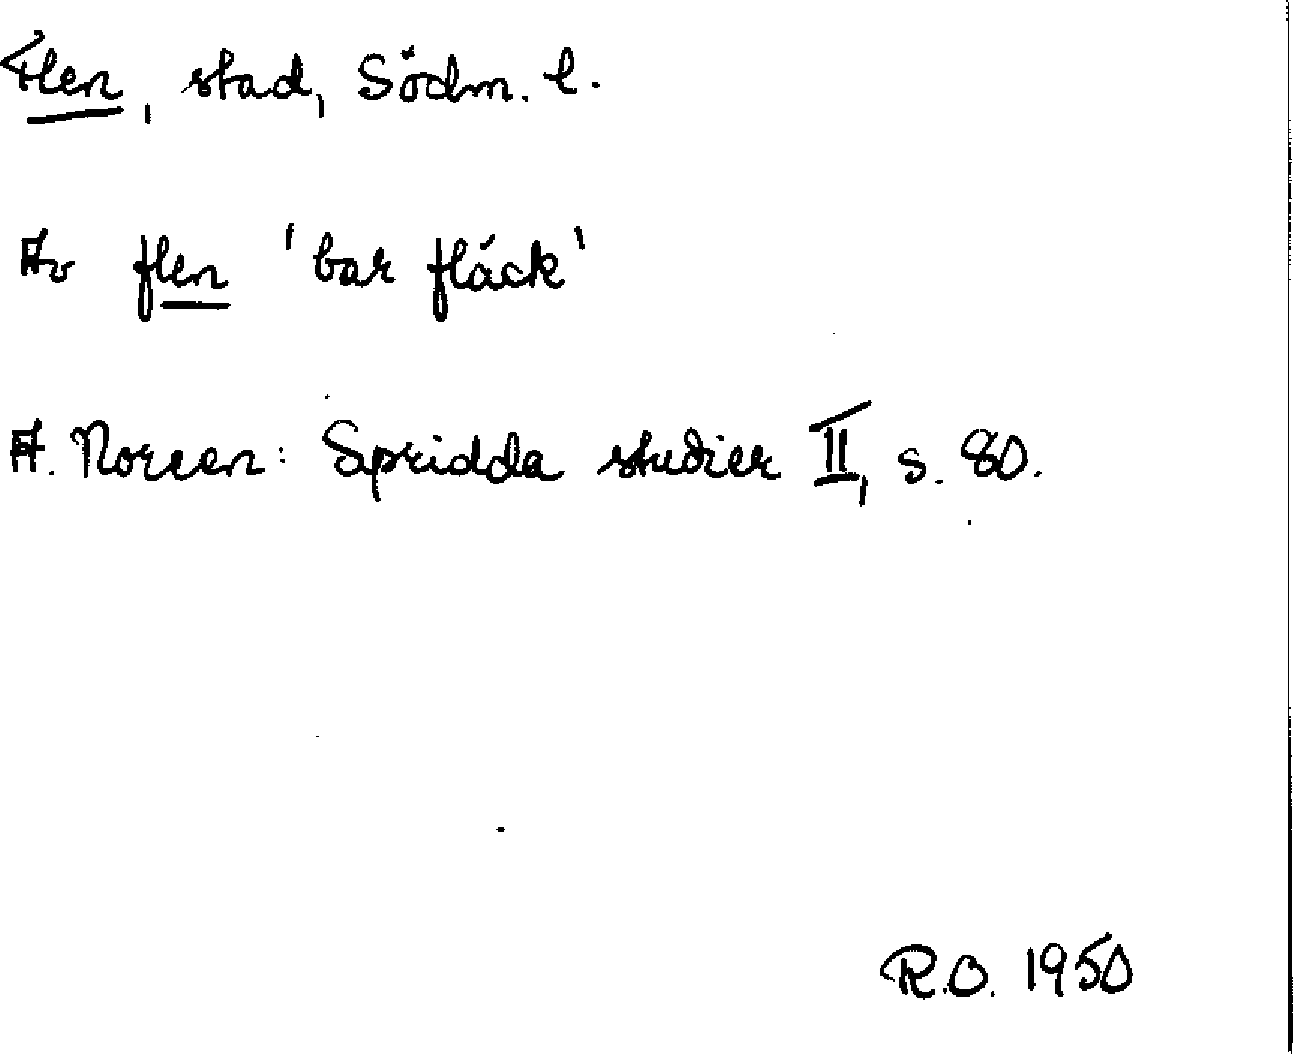 Flen, stad, Södm. l.
Av flen 'bar fläck'
A. Noreen: Spridda studier II, s. 80.
R.O. 1950